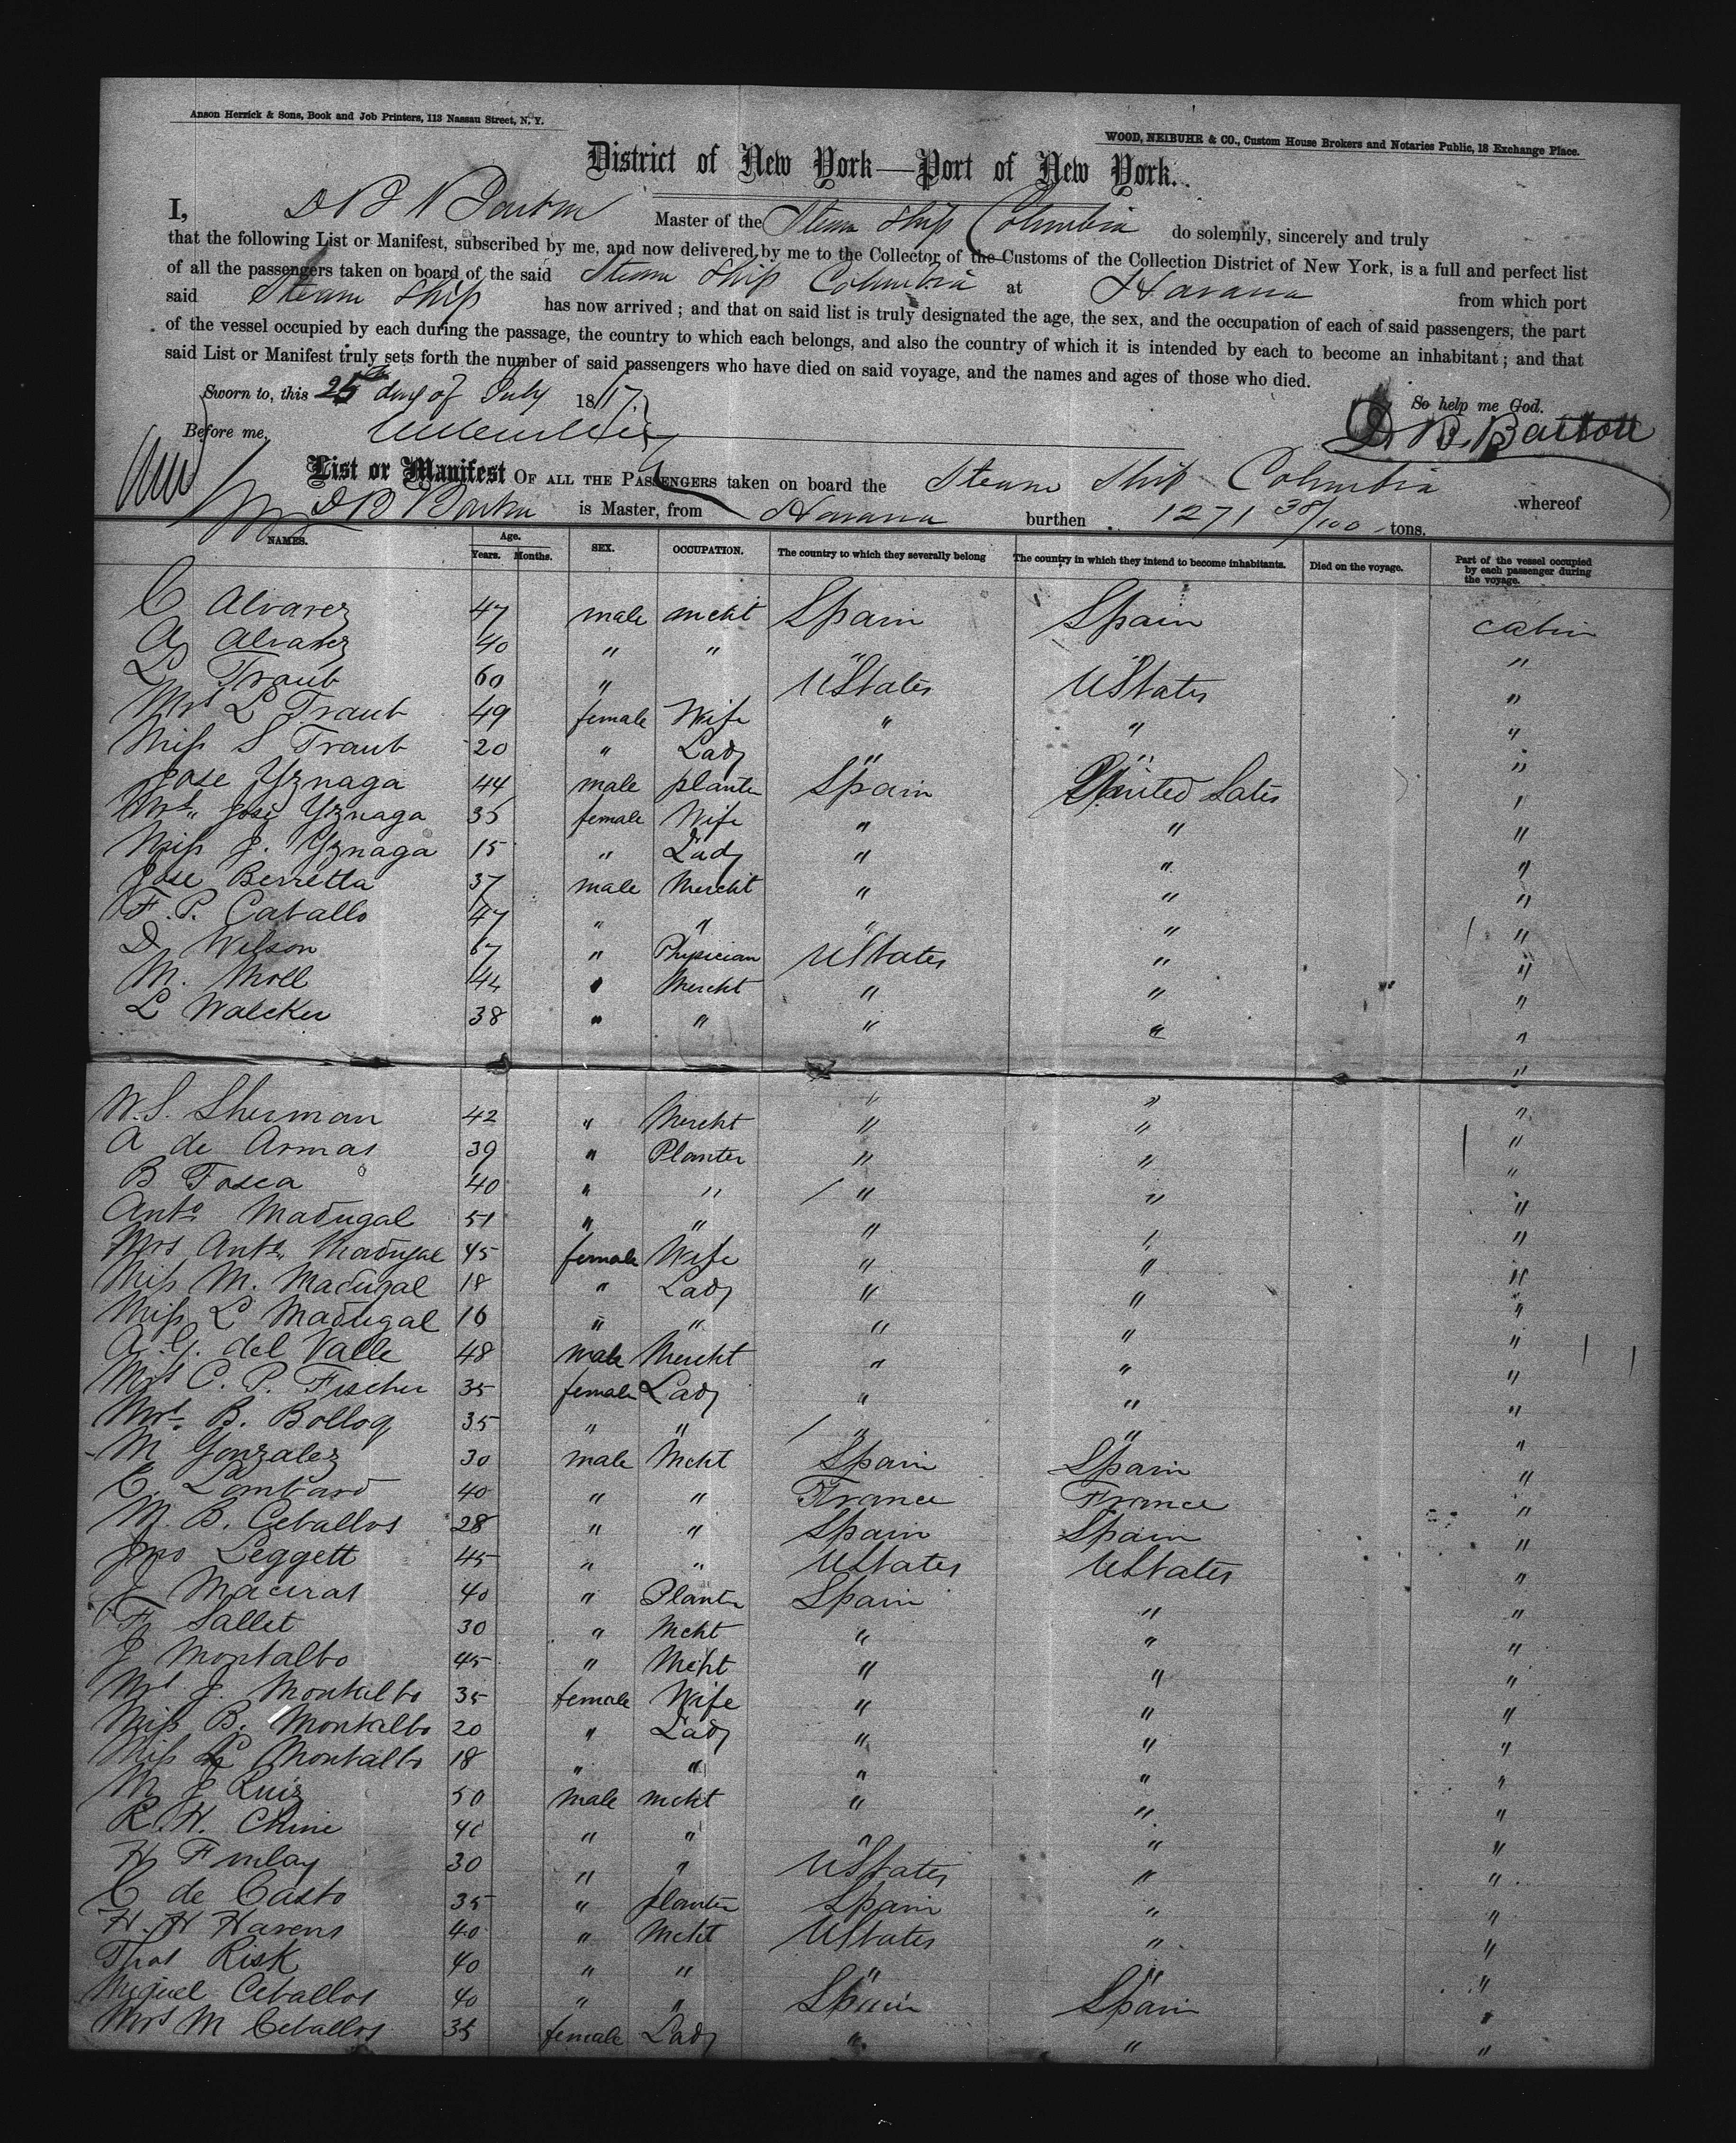 Anson Herrick & Sons, Book and Job Printers, 113 Nassau Street, N. Y.
WOOD, NEIBUHR & CO., Custom House Brokers and Notaries Public, 18 Exchange Place.
District of New York—Port of New York.
I, D B Barton Master of the Steam Ship Columbia do solemnly, sincerely and truly
that the following List or Manifest, subscribed by me, and now delivered by me to the Collector of the Customs of the Collection District of New York, is a full and perfect list
of all the passengers taken on board of the said Steam Ship Columbia at Havana from which port
said Steam Ship has now arrived; and that on said list is truly designated the age, the sex, and the occupation of each of said passengers, the part
of the vessel occupied by each during the passage, the country to which each belongs, and also the country of which it is intended by each to become an inhabitant; and that
said List or Manifest truly sets forth the number of said passengers who have died on said voyage, and the names and ages of those who died.
Sworn to, this 25th day of July 18 So help me God.
Before me, D. B. Barton
List or Manifest OF ALL THE PASSENGERS taken on board the Steam Ship Columbia whereof
D B Barton is Master, from Havana burthen 1271 38/100 tons.
NAMES. Age. Years. Months. SEX. OCCUPATION. The country to which they severally belong The country in which they intend to become inhabitants. Died on the voyage. Part of the vessel occupied by each passenger during the voyage.
C Alvarez 47 male mcht Spain Spain cabin
A Alvarez 40 " " " " "
L Traub 60 " UStates UStates "
Mrs L Traub 49 female Wife " " "
Miss S Traub 20 " Lady " " "
Jose Yznaga 44 male planter Spain United Sates "
Mrs " Jose Yznaga 35 female Wife " " "
Miss J. Yznaga 15 " Lady " " "
Jose Berretta 37 male Mercht " " "
F. P. Caballo 47 " " " " "
D Wilson 67 " Physician UStates " "
M. Moll 44 " Mercht " " "
L Walcker 38 " " " " "
W. S. Sherman 42 " Mercht " " "
A de Armas 39 " Planter " " "
B Tosca 40 " " " " "
Anto Madugal 51 " " " " "
Mrs Anto Madugal 45 female Wife " " "
Miss M. Madugal 18 " Lady " " "
Miss L Madugal 16 " " " " "
A. G. del Valle 48 male Mercht " " "
Mrs C. P. Fischer 35 female Lady " " "
Mrs B. Bolloq 35 " " " " "
M Gonzalez 30 male Mcht Spain Spain "
C. Lombard 40 " " France France "
M. B. Ceballos 28 " " Spain Spain "
Jno Leggett 45 " " UStates UStates "
J Maciras 40 " Planter Spain " "
F Sallet 30 " Mcht " " "
J Montalbo 45 " Mcht " " "
Mrs J. Montalbo 35 female Wife " " "
Miss B. Montalbo 20 " Lady " " "
Miss L Montalbo 18 " " " " "
M J Ruiz 50 male mcht " " "
R. H. Chine 40 " " " " "
H Finlay 30 " " UStates " "
C de Casto 35 " planter Spain " "
H. H Havens 40 " Mcht UStates " "
Thos Risk 40 " " " " "
Miguel Ceballos 40 " " Spain Spain "
Mrs M Ceballos 35 female Lady " " "